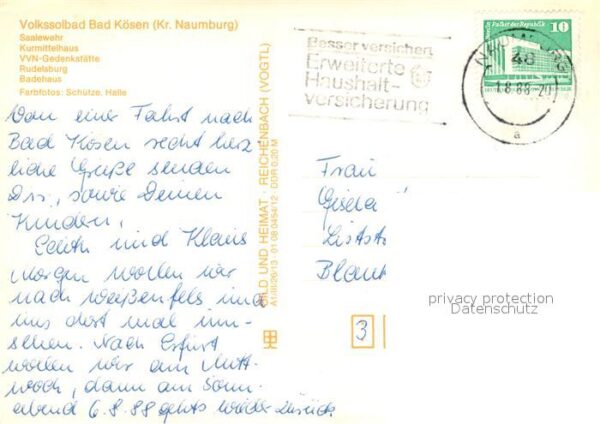 Volkssolbad Bad Kösen (Kr. Naumburg)
Saalewehr
Kurmittelhaus
VVN-Gedenkstätte
Rudelsburg
Badehaus
Farbfotos: Schütze, Halle
Von einer Fahrt nach
Bad Kösen recht herz
liche Grüße senden
Dir, sowie Deinen
Kindern,
Edith und Klaus
Morgen wollen wir
nach Weißenfels und
uns dort mal um-
sehen. Nach Erfurt
wollen wir am Mitt-
woch, dann am Sonn-
abend 6.8.88 gehts wieder zurück
BILD UND HEIMAT · REICHENBACH (VOGTL)
A1/III/26/13 · 01 08 0454/12 · DDR 0,20 M
Besser versichert
Erweiterte
Haushalt-
versicherung
Palast der Republik
10
NAUMBURG
48
1.8.88-20
a
Frau
Gisela
Blank
privacy protection
Datenschutz
3